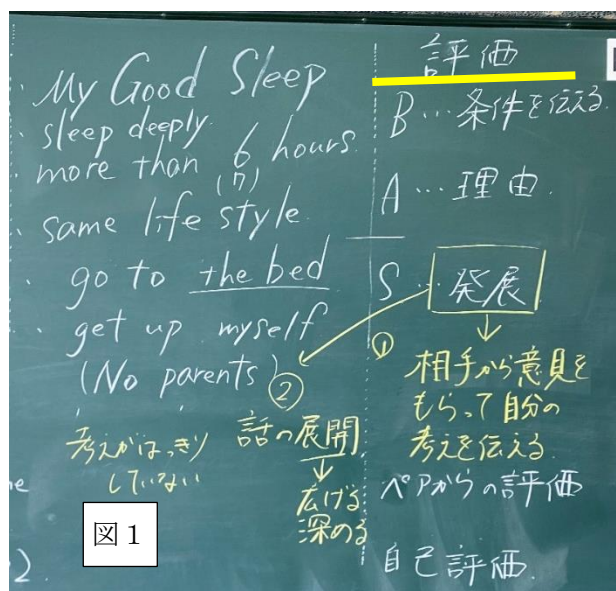 My Good Sleep
sleep deeply.
more than 6 hours.
(7)
same life style.
go to the bed
get up myself
(No parents)
考えがはっきり
していない
②
話の展開
↓
広げる
深める
評価
B…条件を伝える.
A…理由.
S…発展
①
↓
相手から意見を
もらって自分の
考えを伝える.
ペアからの評価
自己評価.
図1
2.